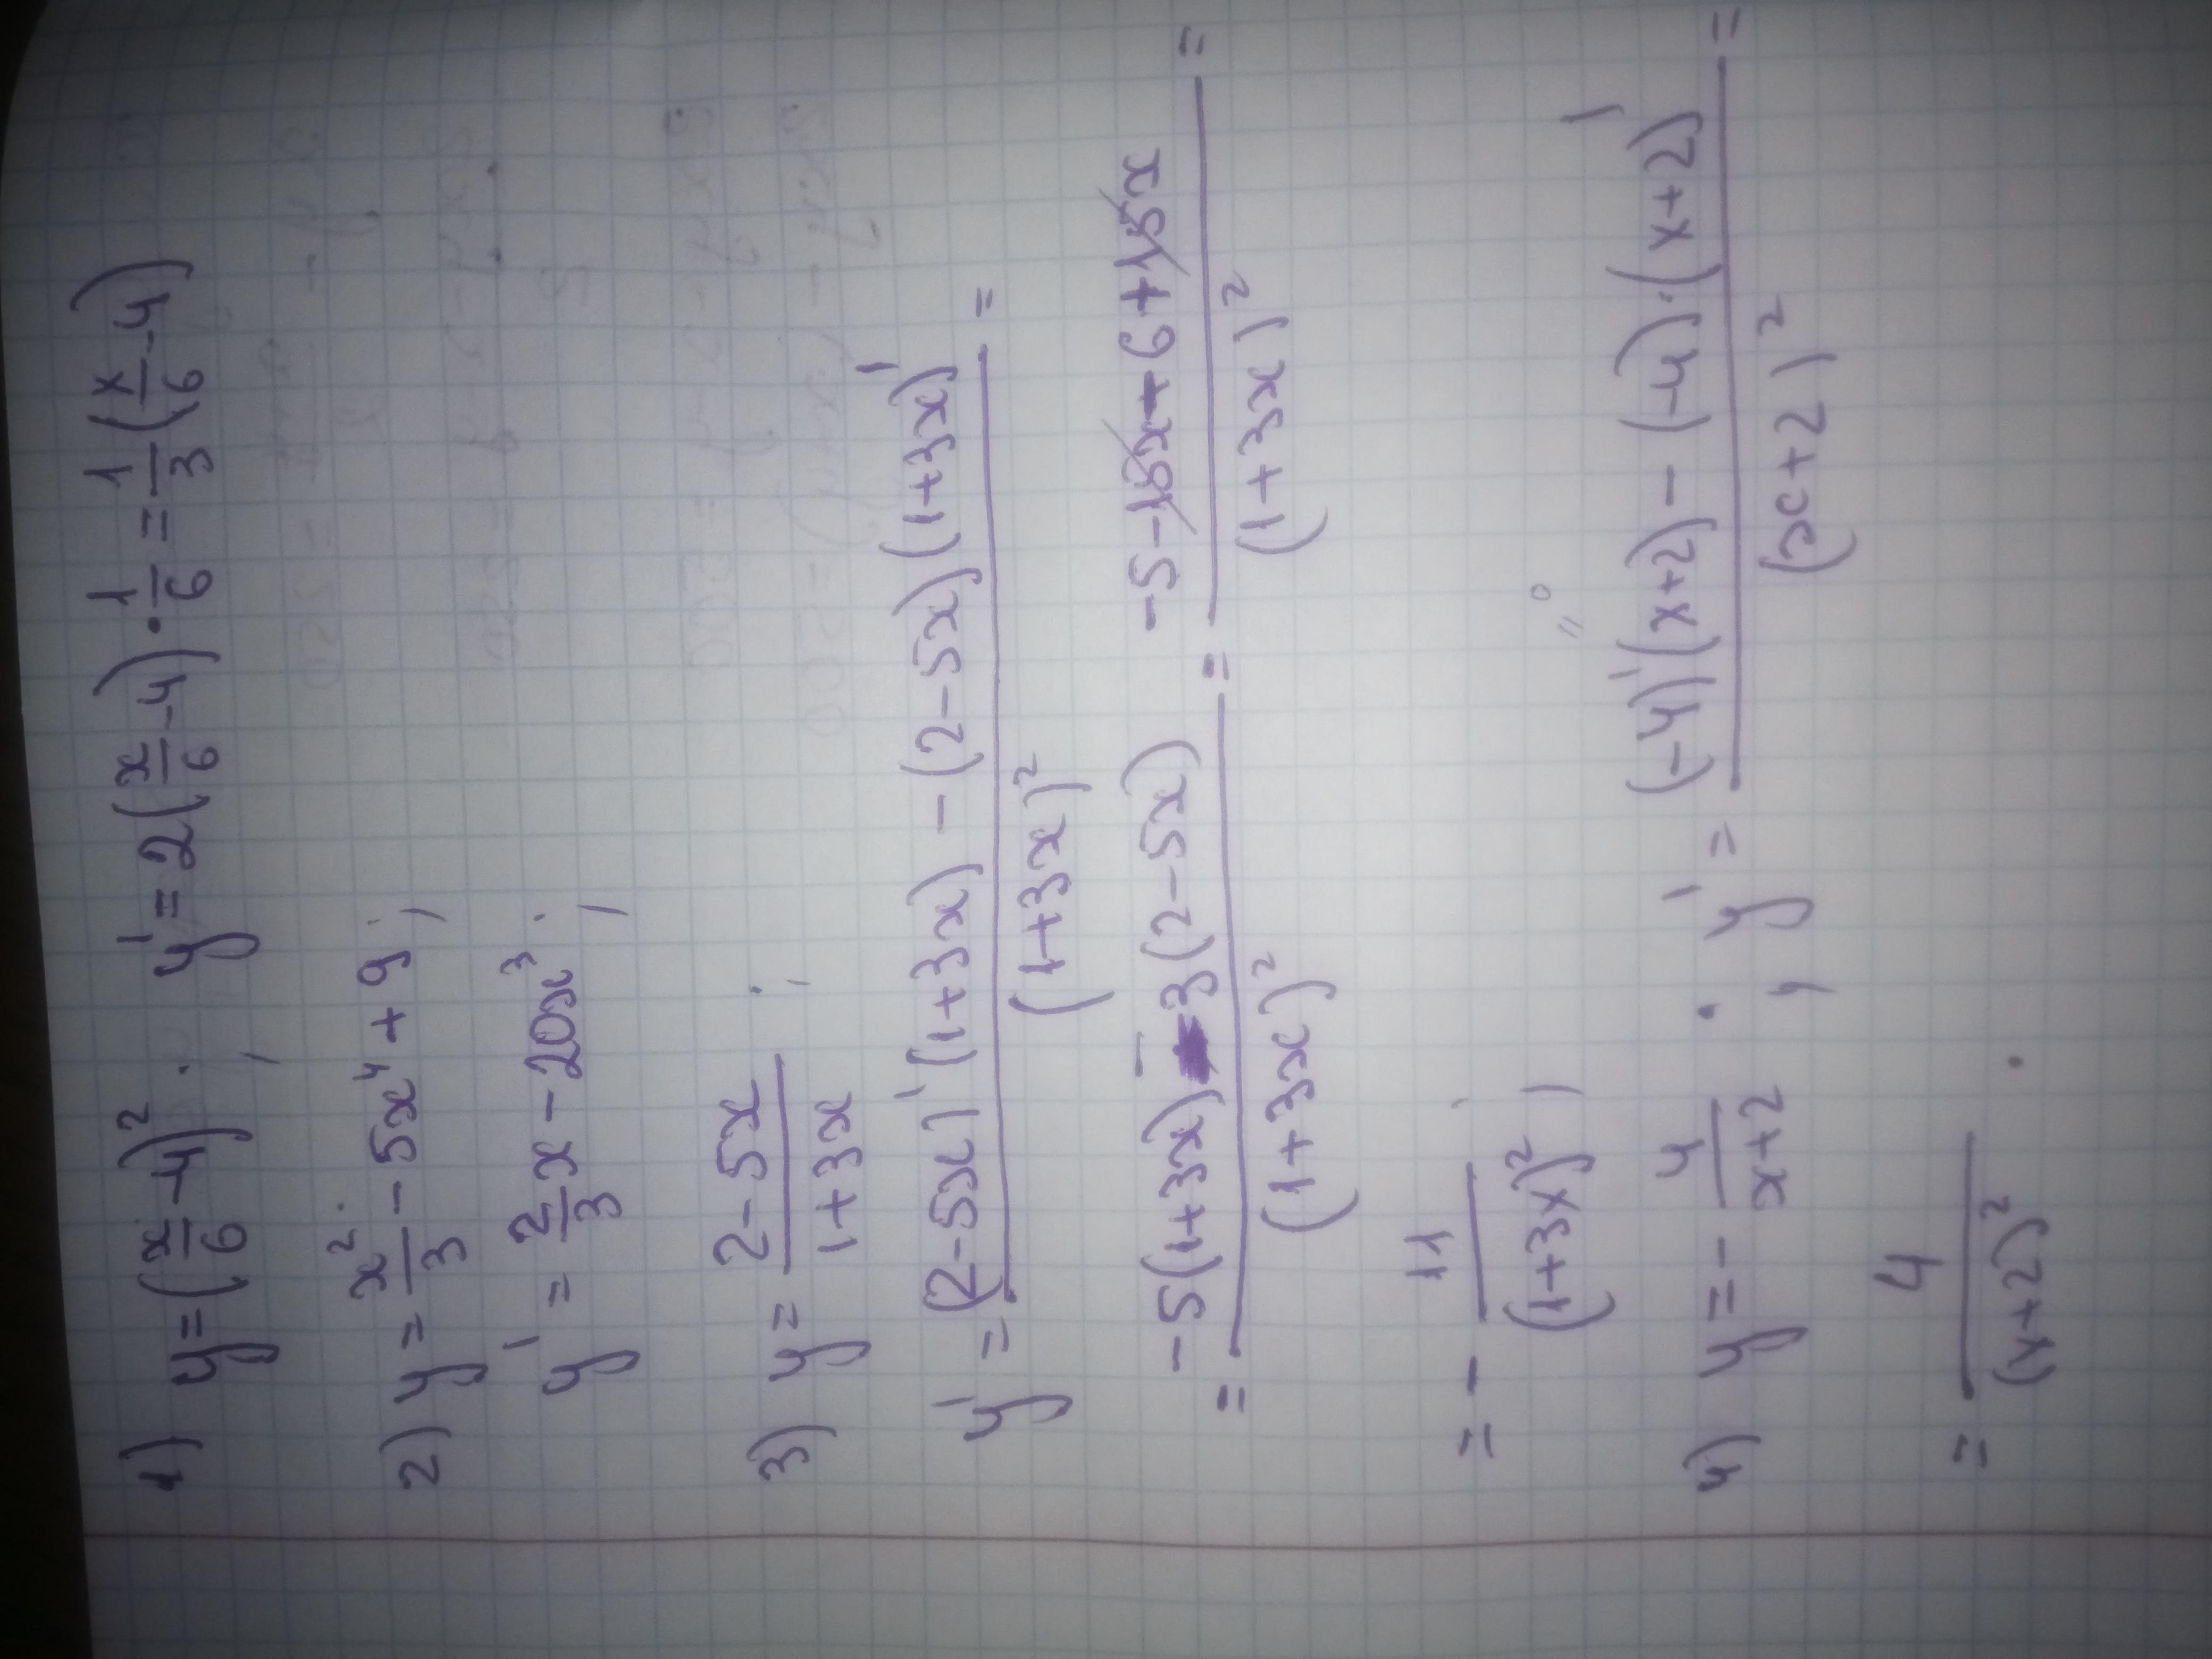 1) y=(x/6-4)²; y'=2(x/6-4)·1/6=1/3(x/6-4)
2) y=x²/3-5x⁴+9;
y'=2/3x-20x³;
3) y=(2-5x)/(1+3x);
y'=((2-5x)'(1+3x)-(2-5x)(1+3x)')/(1+3x)²=
=(-5(1+3x)-3(2-5x))/(1+3x)²=(-5-15x+6+15x)/(1+3x)²=
=-11/(1+3x)²;
4) y=-4/(x+2); y'=((-4)'(x+2)-(-4)·(x+2)')/(x+2)²=
=4/(x+2)².